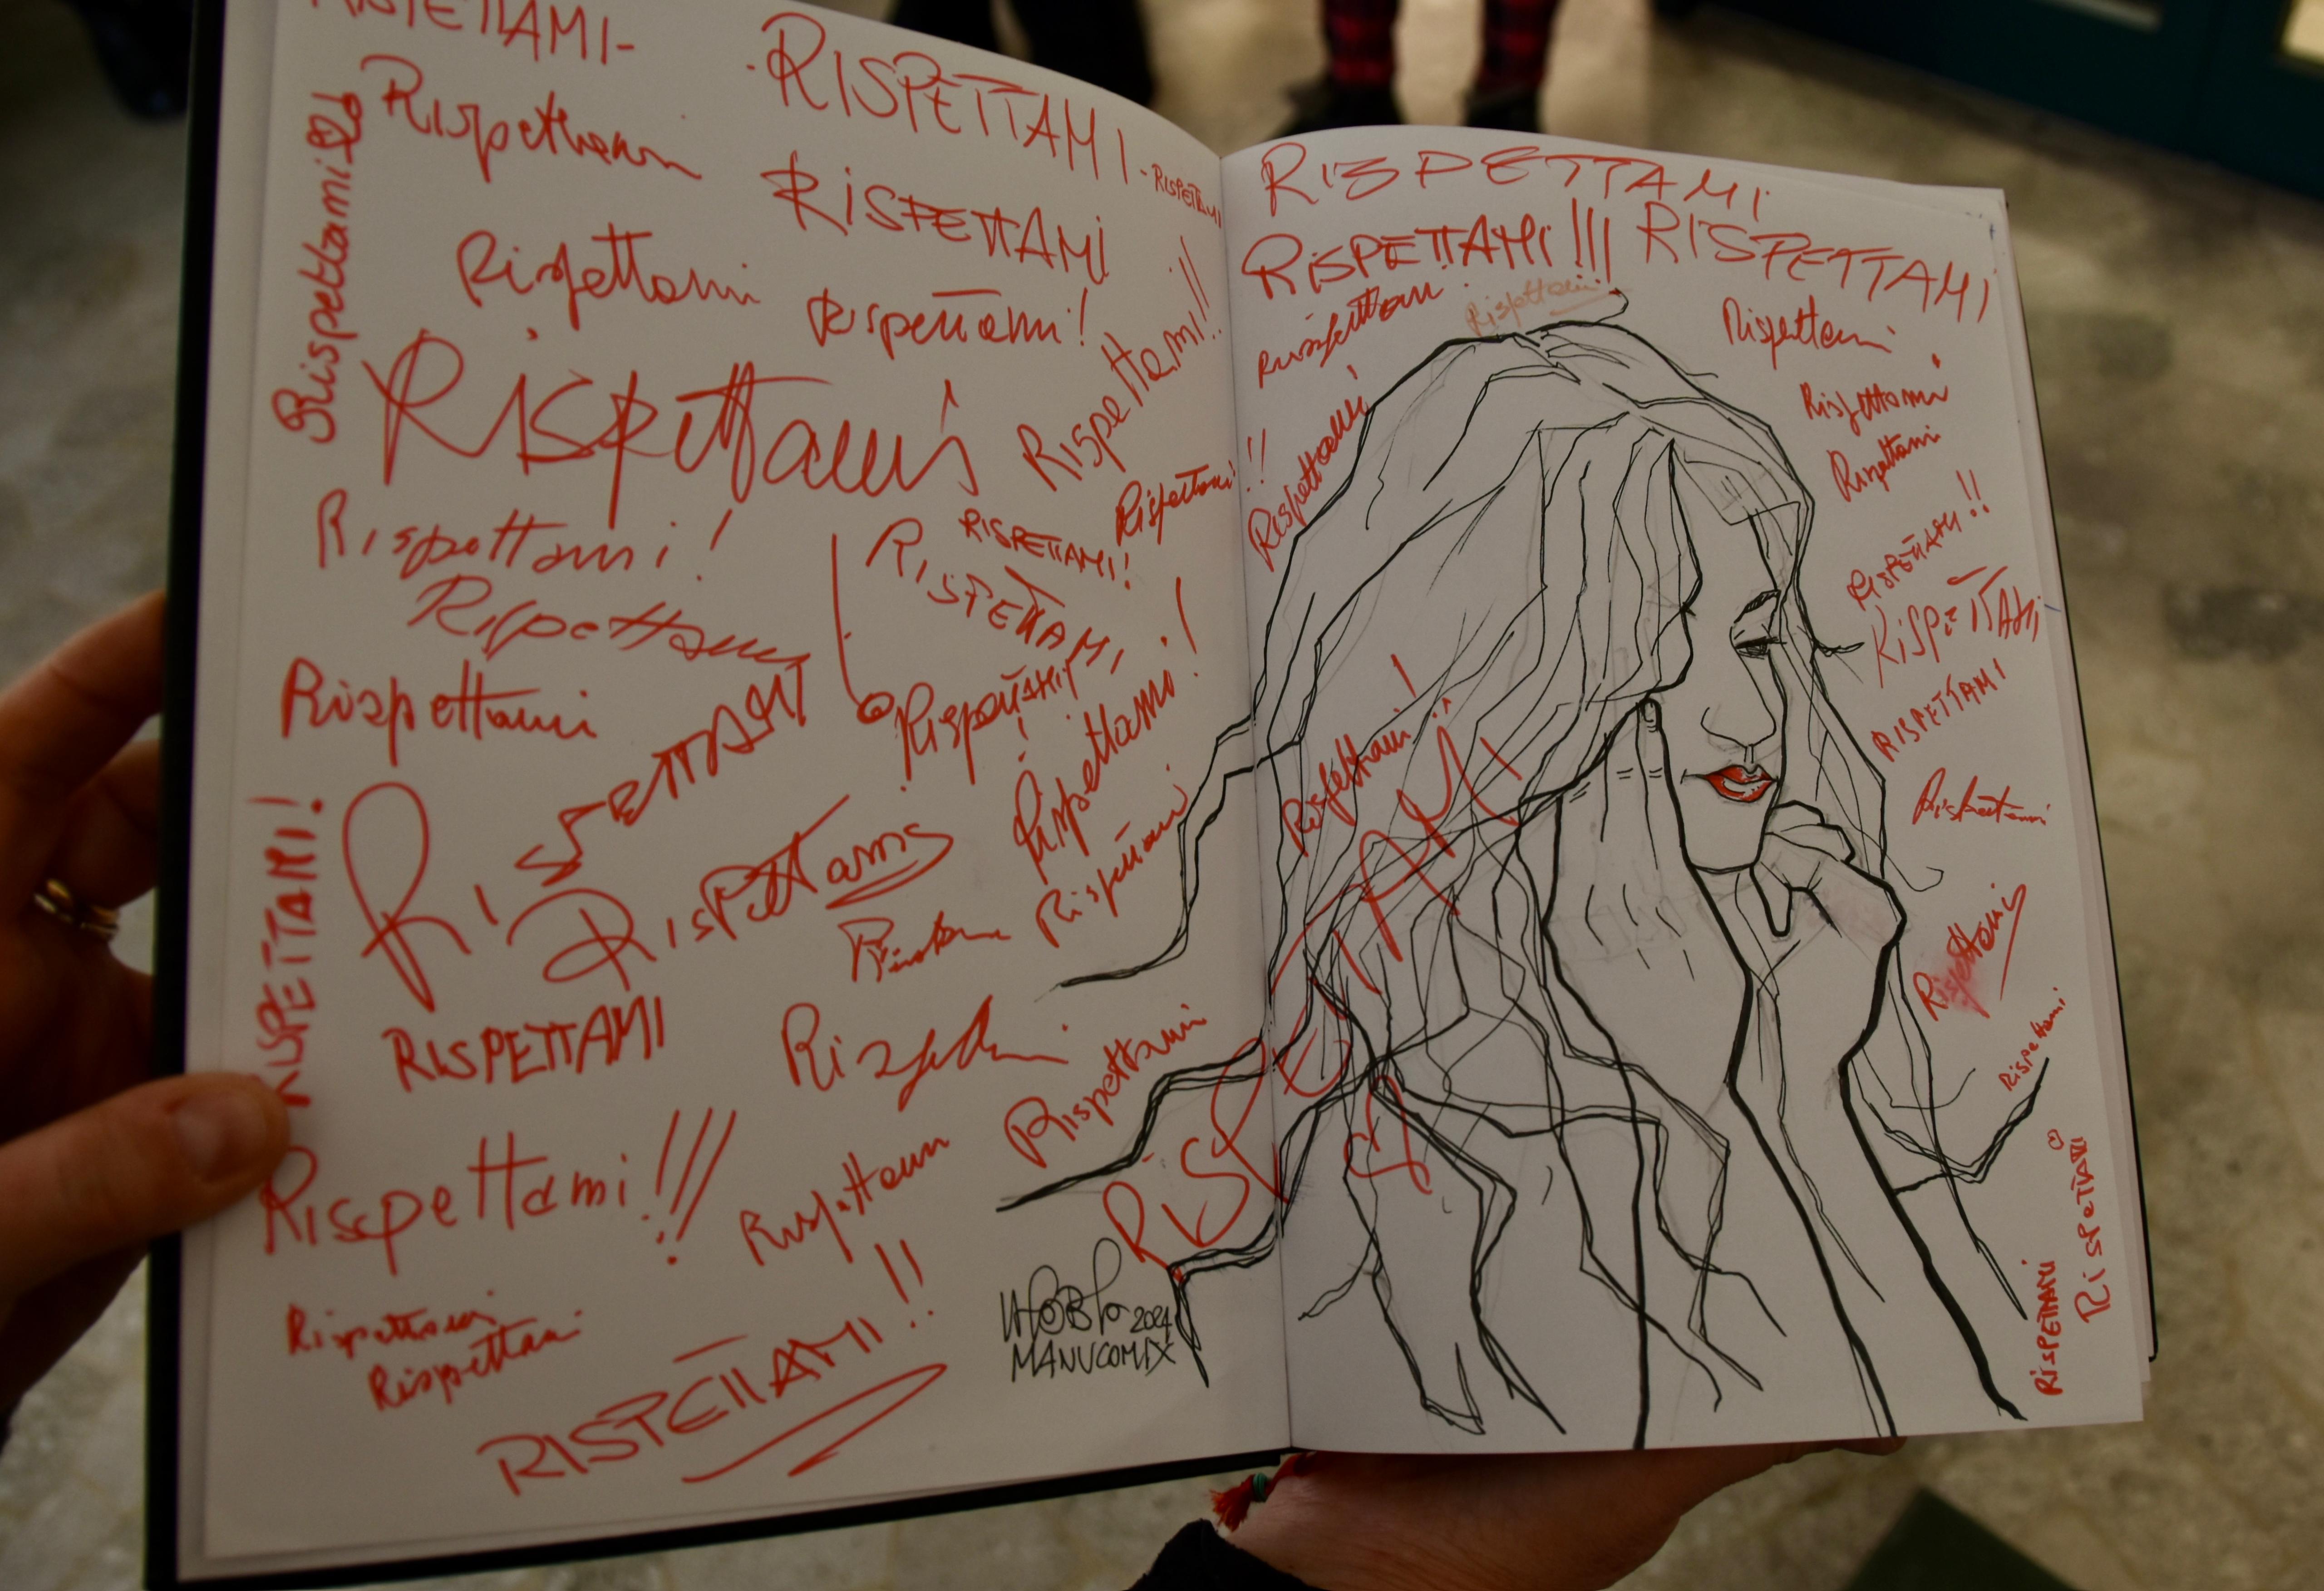 RISPETTAMI-
-RISPETTAMI-
RISPETTAMI
Rispettami
Rispettami
RISPETTAMI
Rispettami
Rispettami!
Rispettami!!
Rispettami
Rispettami!!
Rispettami!
RISPETTAMI!
RISPETTAMI
Rispettami
Rispettami
RISPETTAMI
Rispettami!
Rispettami!
Rispettami
Rispettami
RISPETTAMI!
RISPETTAMI
Rispettami
Rispettami!!!
Rispettami
Rispettami
Rispettami
RISPETTAMI!!
HOBLO 2024
MANUCOMIX
RISPETTAMI
RISPETTAMI
RISPETTAMI!!! RISPETTAMI
Rispettami
Rispettami
Rispettami
Rispettami
Rispettami
Rispettami
RISPETTAMI!!
RISPETTAMI
RISPETTAMI
Rispettami!
Rispettami
Rispettami
Rispettami
RISPETTAMI
RISPETTAMI